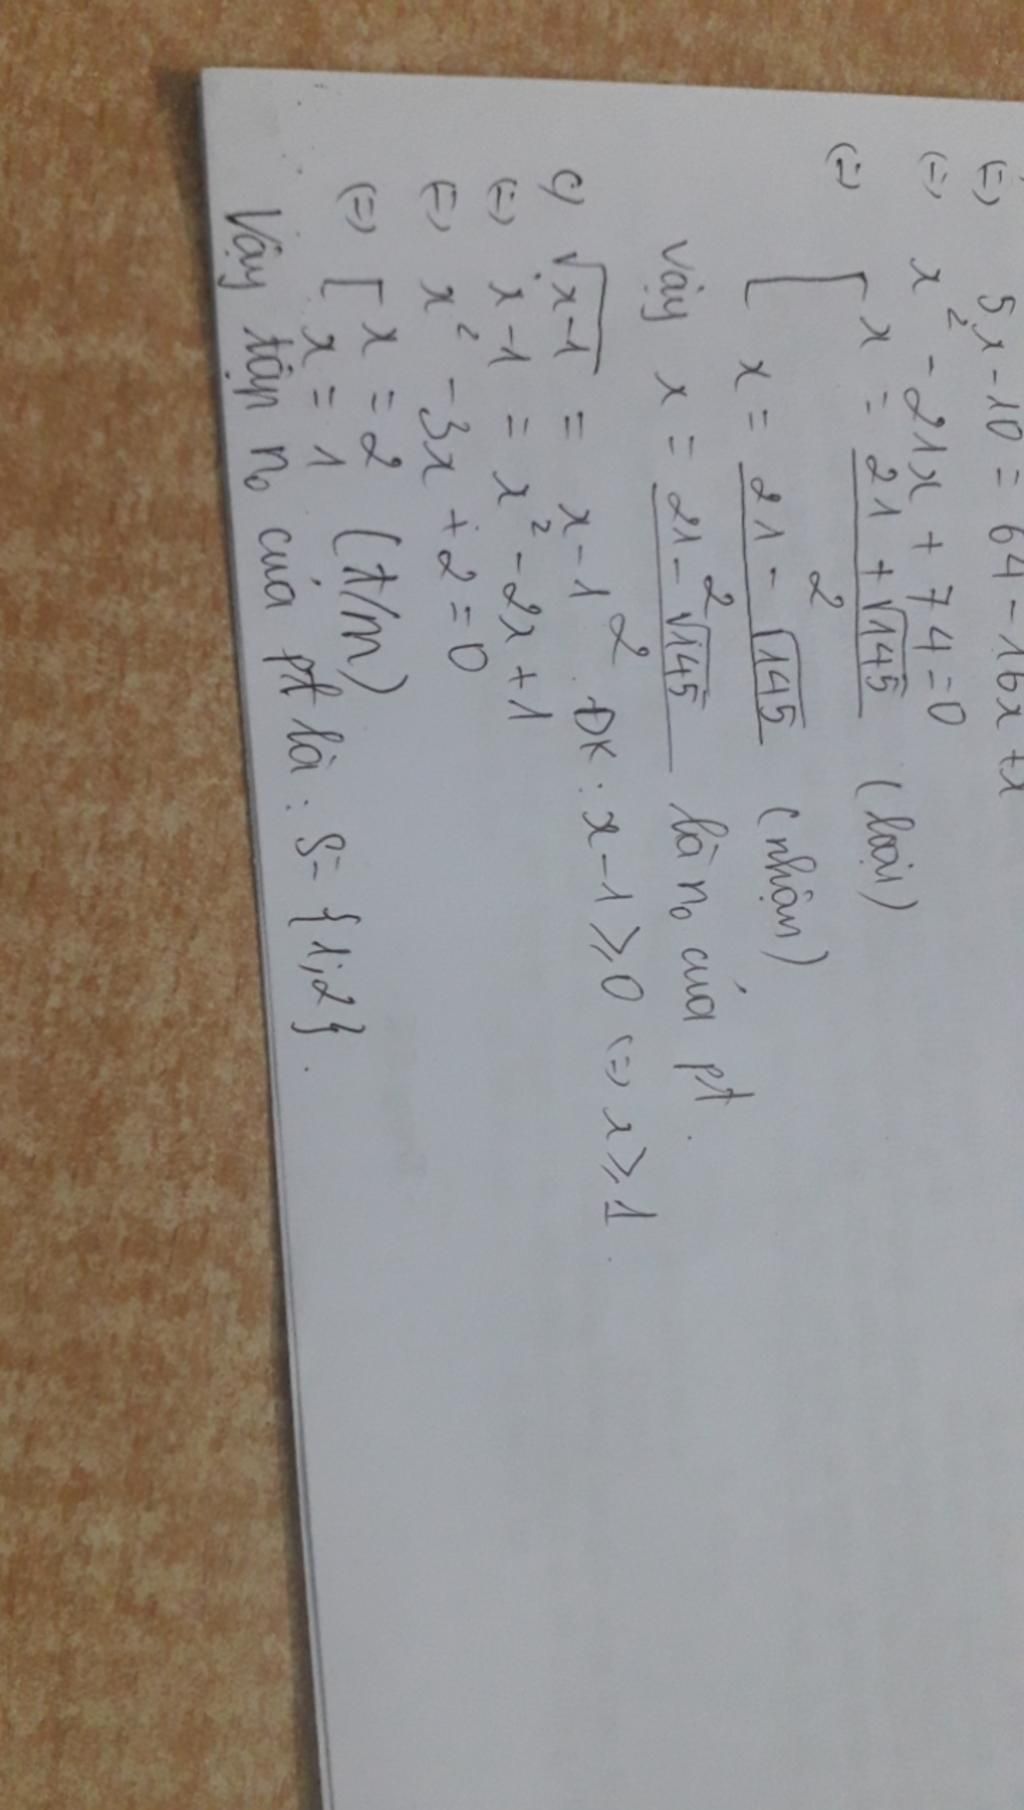 (=) 5x-10 = 64-16x+x
(=) x² - 21x + 74 = 0
(=) [ x = (21 + √145)/2 (loại)
x = (21 - √145)/2 (nhận)
Vậy x = (21 - √145)/2 là n₀ của pt.
c) √x-1 = x-1 ĐK: x-1 ≥ 0 (=) x ≥ 1.
(=) x-1 = x² - 2x + 1
(=) x² - 3x + 2 = 0
(=) [ x = 2 (t/m)
x = 1
Vậy tập n₀ của pt là: S= {1;2}.